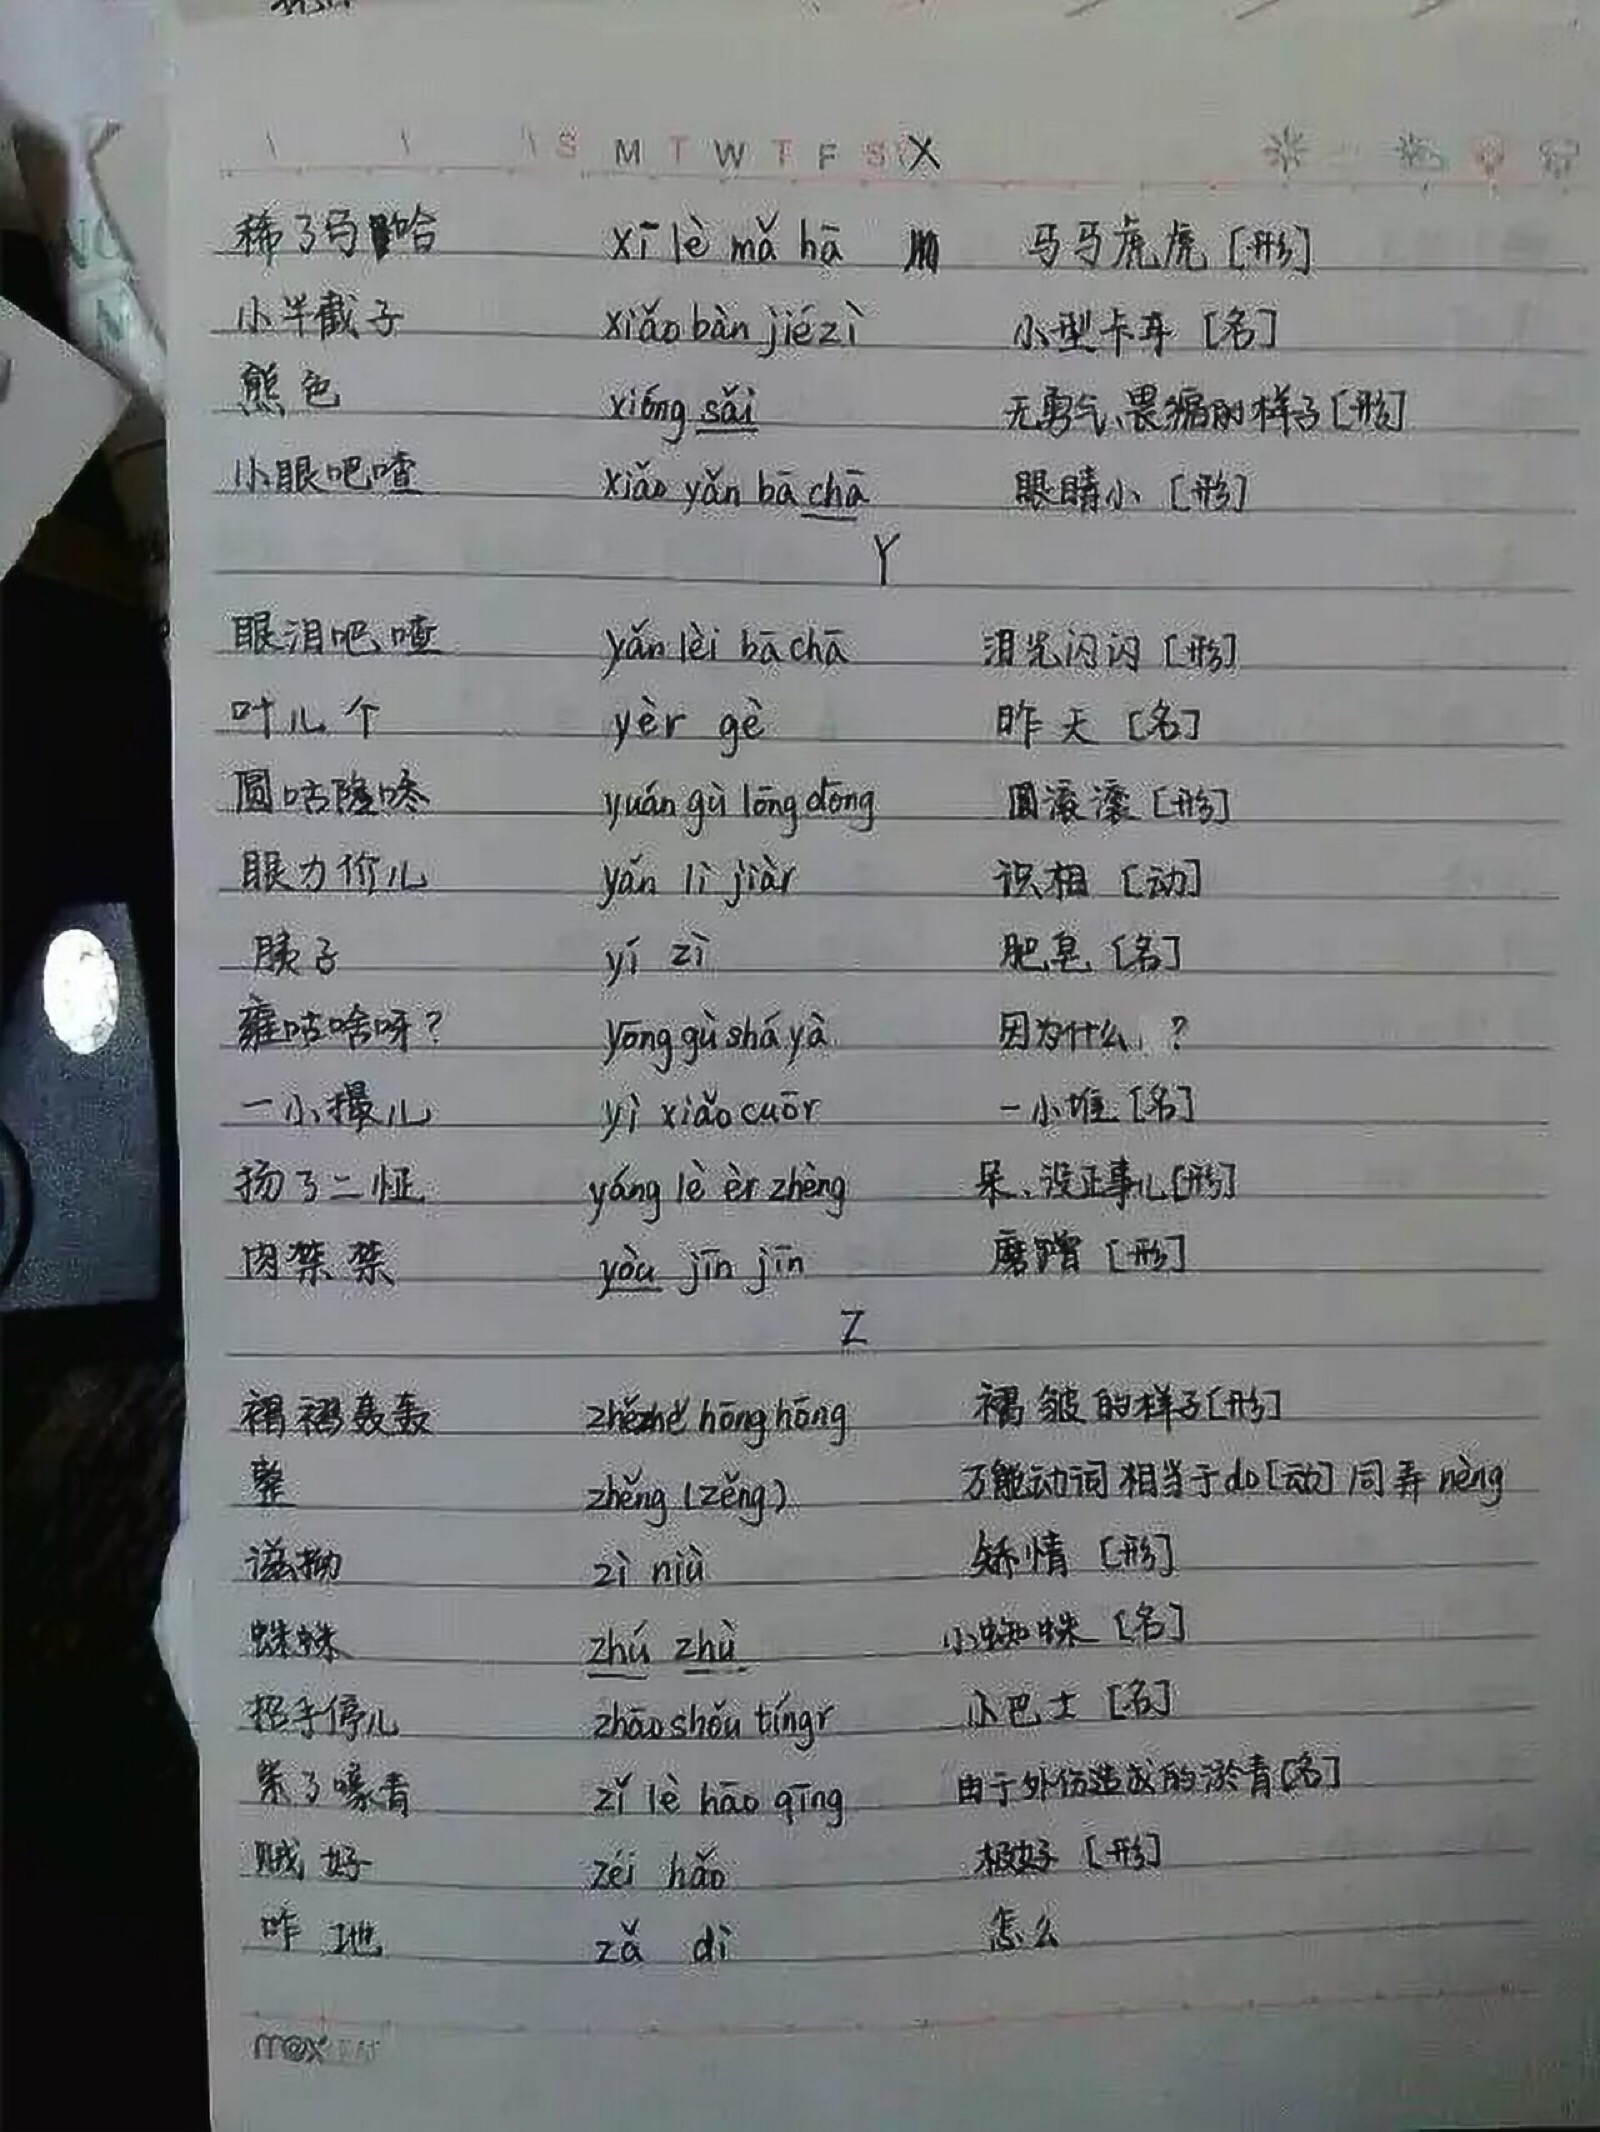 S M T W T F S X
稀了马哈 xī lè mǎ hā 马马虎虎 [形]
小半截子 xiǎo bàn jiézì 小型卡车 [名]
熊色 xióng sǎi 无勇气、畏缩的样子 [形]
小眼吧喳 xiǎo yǎn bā chā 眼睛小 [形]
Y
眼泪吧喳 yǎn lèi bā chā 泪光闪闪 [形]
叶儿个 yèr gè 昨天 [名]
圆咕隆咚 yuán gù lōng dōng 圆滚滚 [形]
眼力价儿 yǎn lì jiàr 识相 [动]
胰子 yí zì 肥皂 [名]
雍咕啥呀? yōng gù shá yà 因为什么?
一小撮儿 yì xiǎo cuōr 一小堆 [名]
扬了二怔 yáng lè èr zhèng 呆、没正事儿 [形]
肉禁禁 yòu jīn jīn 磨蹭 [形]
Z
褶褶轰轰 zhězhě hōng hōng 褶皱的样子 [形]
整 zhěng (zěng) 万能动词 相当于do [动] 同弄 nèng
滋拗 zì niù 矫情 [形]
蛛蛛 zhú zhù 小蜘蛛 [名]
招手停儿 zhāo shǒu tíngr 小巴士 [名]
紫了嚎青 zǐ lè hāo qīng 由于外伤造成的淤青 [名]
贼好 zéi hǎo 极好 [形]
咋地 zǎ dì 怎么